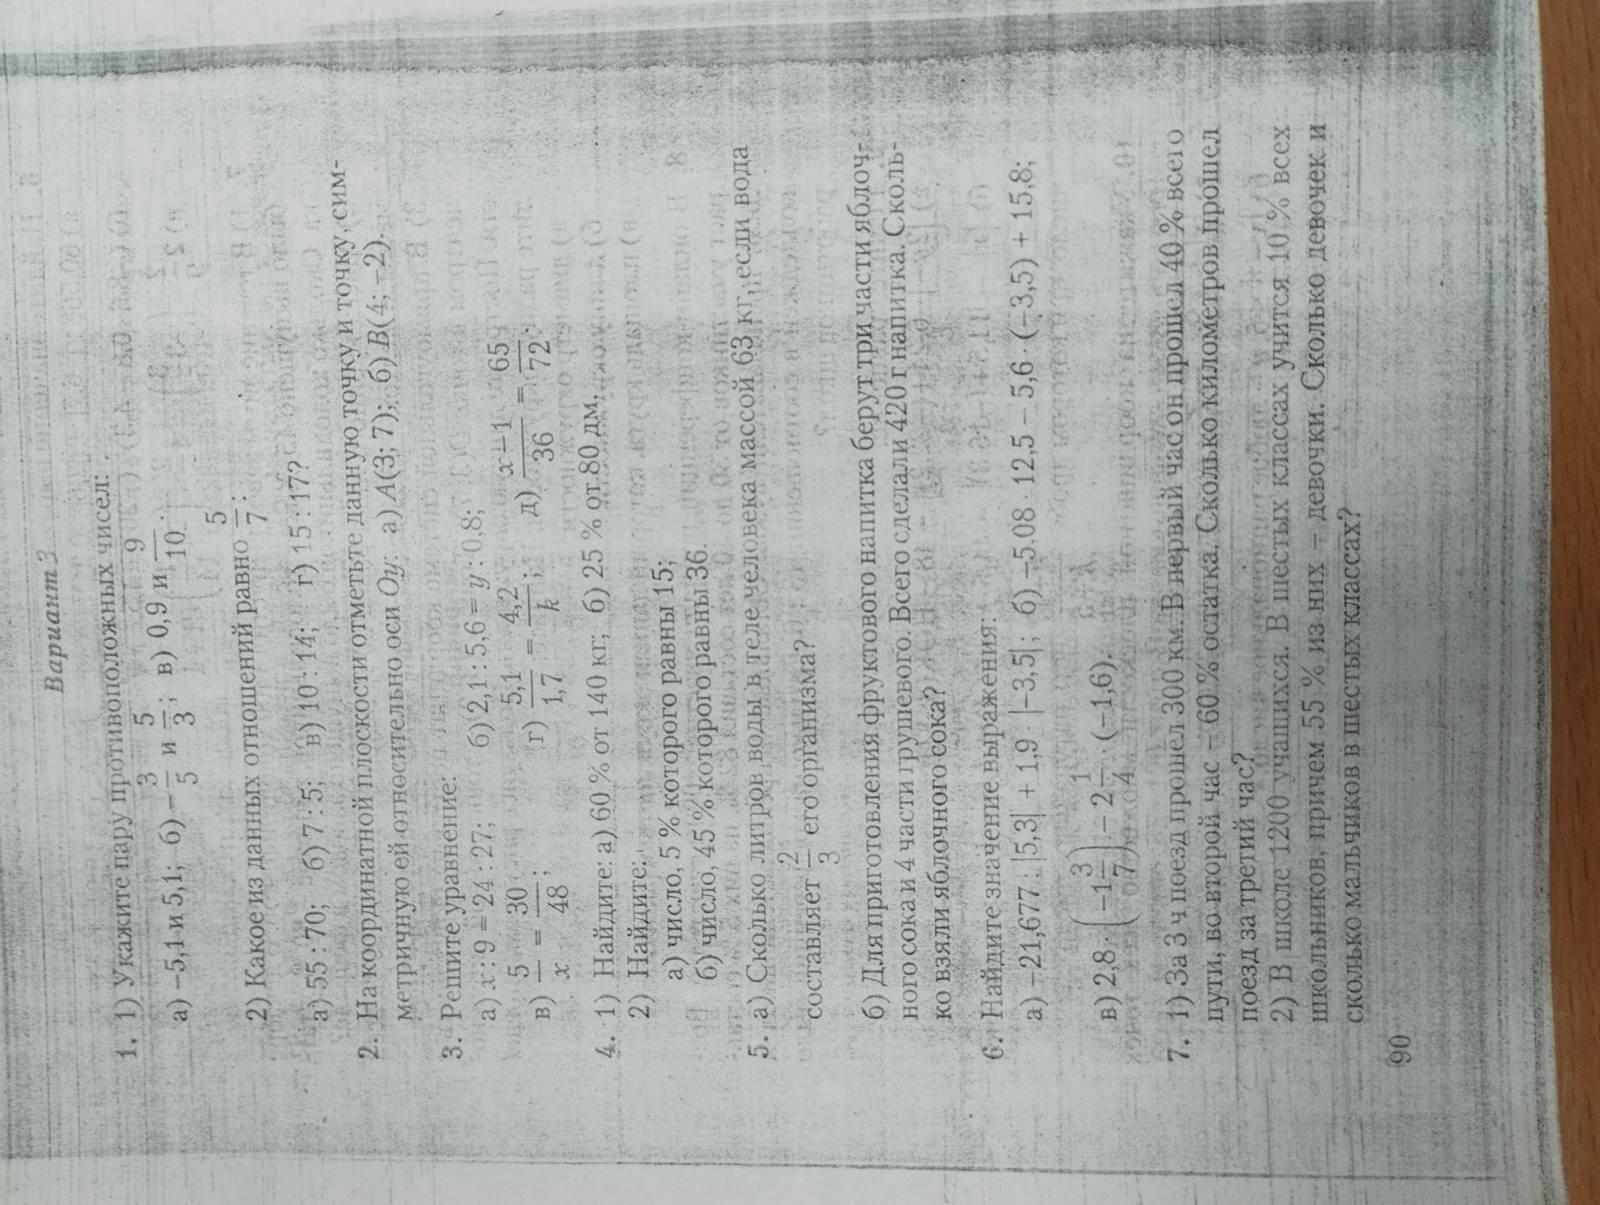 Вариант 3
1. 1) Укажите пару противоположных чисел:
а) −5,1 и 5,1; б) −3/5 и 5/3; в) 0,9 и 9/10.
2) Какое из данных отношений равно 5/7:
а) 55 : 70; б) 7 : 5; в) 10 : 14; г) 15 : 17?
2. На координатной плоскости отметьте данную точку и точку, сим-
метричную ей относительно оси Oy: а) A(3; 7); б) B(4; −2).
3. Решите уравнение:
а) x : 9 = 24 : 27; б) 2,1 : 5,6 = y : 0,8;
в) 5/x = 30/48; г) 5,1/1,7 = 4,2/k; д) x−1/36 = 65/72.
4. 1) Найдите: а) 60 % от 140 кг; б) 25 % от 80 дм.
2) Найдите:
а) число, 5 % которого равны 15;
б) число, 45 % которого равны 36.
5. а) Сколько литров воды в теле человека массой 63 кг, если вода
составляет 2/3 его организма?
б) Для приготовления фруктового напитка берут три части яблоч-
ного сока и 4 части грушевого. Всего сделали 420 г напитка. Сколь-
ко взяли яблочного сока?
6. Найдите значение выражения:
а) −21,677 : |5,3| + 1,9 · |−3,5|; б) −5,08 · 12,5 − 5,6 · (−3,5) + 15,8;
в) 2,8 · (−1 3/7) − 2 1/4 · (−1,6).
7. 1) За 3 ч поезд прошел 300 км. В первый час он прошел 40 % всего
пути, во второй час − 60 % остатка. Сколько километров прошел
поезд за третий час?
2) В школе 1200 учащихся. В шестых классах учится 10 % всех
школьников, причем 55 % из них − девочки. Сколько девочек и
сколько мальчиков в шестых классах?
90